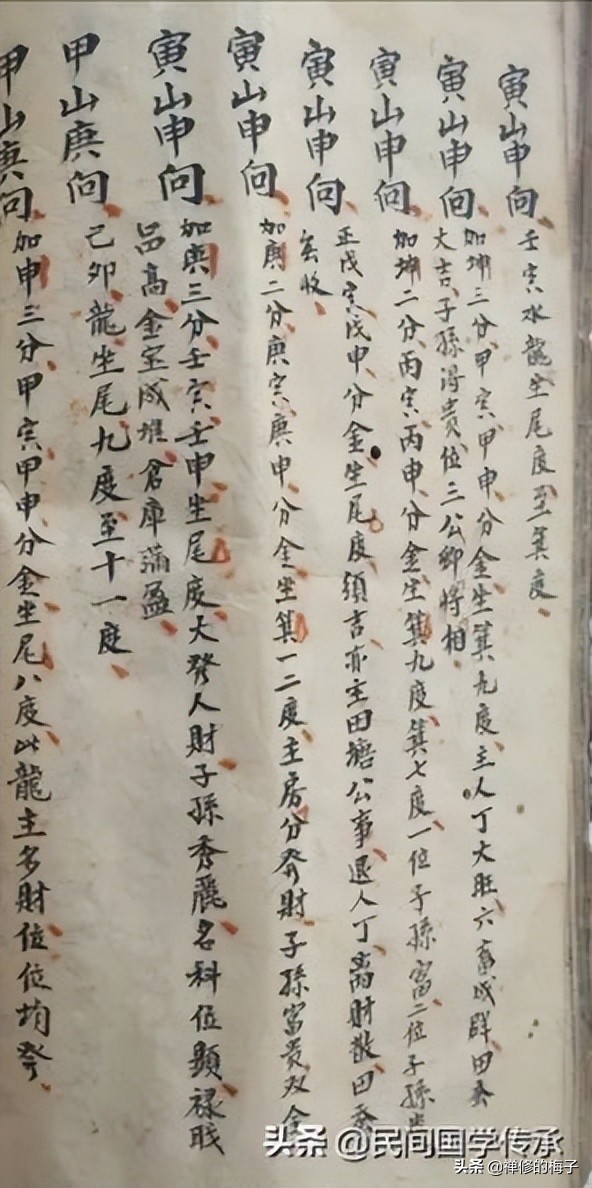 寅山申向 壬寅水龍坐尾度至箕度
寅山申向 加坤三分甲寅甲申分金坐箕九度主人丁大旺六畜成群田蚕
大吉子孫得貴位三公卿將相
寅山申向 加坤二分丙寅丙申分金坐箕九度箕七度一位子孫富二位子孫
寅山申向 正戊寅戊申分金坐尾度須吉亦主田塘公事退人丁离財散田蚕
無收
寅山申向 加庚二分庚寅庚申分金坐箕一二度主房分發財子孫富貴双全
寅山申向 加庚三分壬寅壬申坐尾度大發人財子孫秀麗名科位顯禄職
品高金宝成堆倉庫滿盈
甲山庚向 己卯龍坐尾九度至十一度
甲山庚向 加申三分甲寅甲申分金坐尾八度此龍主多財位位均發
头条 @民间国学传承
头条 @禅修的梅子